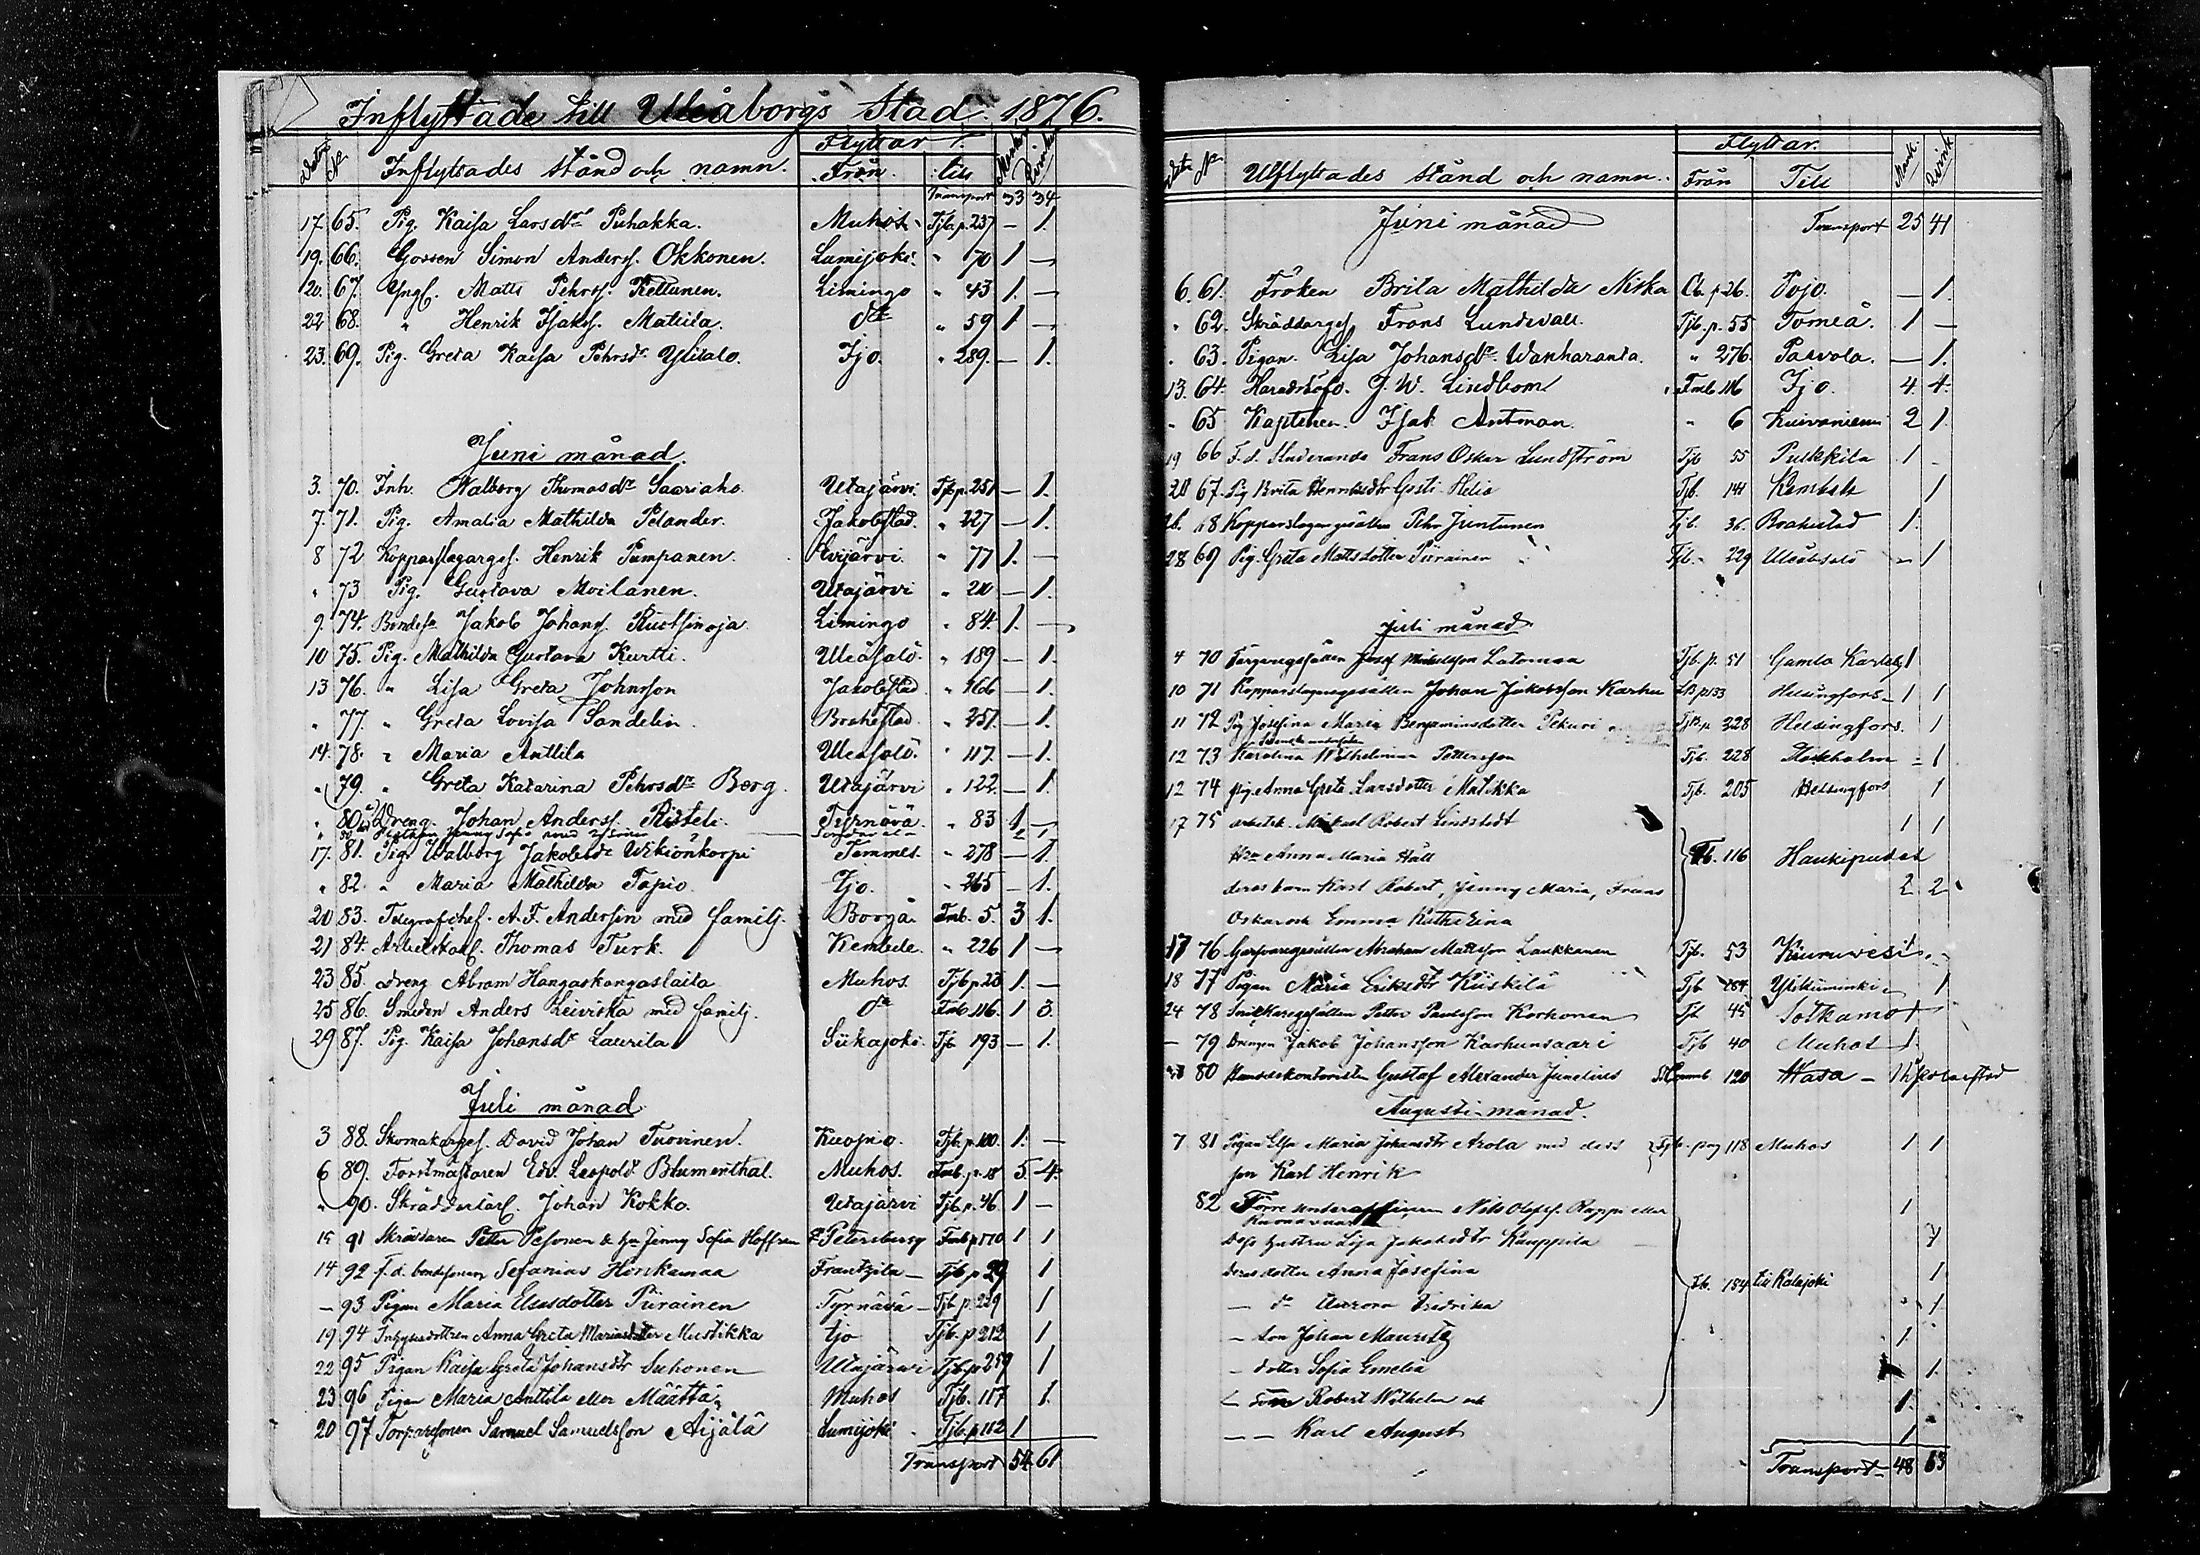 Inflyttade till Uleåborgs Stad. 1876.
Flyttar
Dato N:o Inflyttades stånd och namn. Från till Mank. Qvink.
Transport 33 34
17. 65. Pig. Kaisa Larsdr Puhakka. Muhos Tjb. p. 237 — 1.
19. 66. Gossen Simon Anders. Okkonen. Lumijoki. " 70 1 —
20. 67. Yngl. Matts Pehrs. Kettunen. Limingo " 43 1. —
22 68. " Henrik Isaks. Mattila. do " 59 1 —
23. 69. Pig. Greta Kaisa Pehrsdr Ylitalo. Ijo. " 289. — 1.
Juni månad.
3. 70. Inh. Walborg Thomasdr Saariaho. Utajärvi. Tjb p. 251 — 1.
7. 71. Pig. Amalia Mathilda Pelander. Jakobstad. " 227 — 1.
8 72 Kopparslagarges. Henrik Pumpanen. " 77 1. —
" 73 Pig. Gustava Moilanen. Utajärvi " 210 — 1.
9. 74. Bondes. Jakob Johans. Ruotsinoja. Limingo " 84. 1. —
10 75. Pig. Mathilda Gustava Kurtti. Uleåsalo. " 189 — 1.
13 76. " Lisa Greta Johnsson Jakobstad " 166 — 1.
" 77. " Greta Lovisa Sandelin. Brahestad " 251. — 1.
14. 78. " Maria Anttila Uleåsalo. " 117. — 1.
" 79. " Greta Katarina Pehrsdr Berg. Utajärvi " 122 — 1.
" 80 Dreng. Johan Anders. Ristela. Tyrnävä. " 83 1 —
17. 81. Pig. Walborg Jakobsdr Temmes. " 278 — 1.
" 82. " Maria Mathilda Tapio. Ijo. " 265 — 1.
20 83. Telegrafchef. A. F. Andersin med familj. Borgå Fmb. 5. 3 1.
21 84. Arbetskarl. Thomas Turk. Kembele. " 226 1 —
23 85. Dreng Abram Hangaskangaslaita Muhos. Tjb p. 23 1. —
25 86. Smeden Anders Leiviskä med familj. do Fmb 116. 1 3.
29 87. Pig. Kaisa Johansdr Laurila Siikajoki. Tjb 193 — 1.
Juli månad.
3 88. Skomakarges. David Johan Tuovinen. Kuopio. Tjb. p. 100. 1. —
6 89. Forstmästaren Edv. Leopold Blumenthal. Muhos. Fmb. p. 18 5. 4.
" 90. Johan Kokko. Utajärvi Tjb. p. 46 1 —
15 91 Skräddaren Petter Pesonen & hu Jenny Sofia Hoffren Petersburg Fmb p 110 1 1
14 92 Sefanias Honkamaa Frantzila — Tjb p 29 1
— 93 Pigan Maria Esasdotter Piirainen Tyrnävä — Tjb p. 229 1
19 94 Anna Greta Mariasdotter Mustikka Ijo Tjb. p 212 1
22 95 Pigan Kaisa Greta Johansdtr Suhonen Utajärwi Tjb p 259 1
23 96 Pigan Maria Anttila eller Määtta, Muhos Tjb. 117 1.
20 97 Torparsonen Samuel Samuelsson Aijälä Lumijoki Tjb. p 112 1
Transport 54 61
Flyttar.
Dato N:o Utflyttades stånd och namn. Från Till Mank. Qvink
Juni månad Transport 25 41
6. 61. Fröken Brita Mathilda Niska Cb. p 26. Pojo. — 1.
" 62. Skräddarges. Frans Lundvall. Tjb. p. 55 Torneå. 1 —
" 63. Pigan. Lisa Johansdr. Wanharanta. " 276. Paavola. — 1.
13. 64. Häradshöfd. J. W. Lindbom Fmb 116 Ijo. 4. 4.
" 65 Kaptenen. Isak Antman. " 6 Kuivaniemi 2 1.
19 66 F. d. Studerande Frans Oskar Lundström Tjb 55 Pulkkila 1 -
20 67. Pig Brita Henriksdtr Heliö Tjb. 141 Kembele 1
26. 68 Kopparslagaregesällen Pehr Juntunen Tjb. 36. Brahestad 1.
28 69 Pig. Greta Mattsdotter Piirainen Tjb. 229 Uleåsalo — 1
Juli månad
4 70 Färgaregesällen Josef Mickelsson Latomaa Tjb. p. 51 Gamla Karleby 1
10 71 Kopparslagaregesällen Johan Jakobsson Karhu p 133 Helsingfors — 1 1
11 72 Pig Josefina Maria Benjaminsdotter Pekuri Tjb. p 228 Helsingfors. 1
12 73 Karolina Wilhelmina Pettersson Tjb. 228 Stockholm — 1
12 74 pig. Anna Greta Larsdotter Matikka Tjb. 205 Helsingfors 1
17 75 arbetsk. Mickael Robert Lindstedt 1 1
Hu Anna Maria Häll Fb. 116 Haukipudas
deras barn Karl Robert, Jenny Maria, Frans 2 2
Oskar och Emma Katharina
17 76 Garfvaregesällen Abraham Mattsson Laukkanen Tjb. 53 Kiuruwesi 1. -
18 77 Pigan Maria Eriksdtr Kiiskilä Tjb 184 Ylikiiminki — 1
24 78 Petter Paulsson Korhonen Tjb 45 Sotkamo 1
— 79 Drengen Jakob Johansson Karhunsaari Tjb 40 Muhos 1.
80 Handelskontoristen Gustaf Alexander Junelius 120 Wasa — 1
Augusti månad.
7 81 Pigan Elsa Maria Johansdtr Arola med dess Tjb. pag 118 Muhos 1 1
son Karl Henrik
82 Förre underofficeren Nils Olofss. Rappi eller 1
Dess hustru Lisa Jakobsdtr Kauppila 1
Deras dotter Anna Josefina Fb. 184 till Kalajoki 1
— do Aurora Fredrika 1.
— son Johan Mauritz 1.
— dotter Sofia Emelia 1.
— sonen Robert Wilhelm och 1.
— — Karl August 1
Transport — 48 63